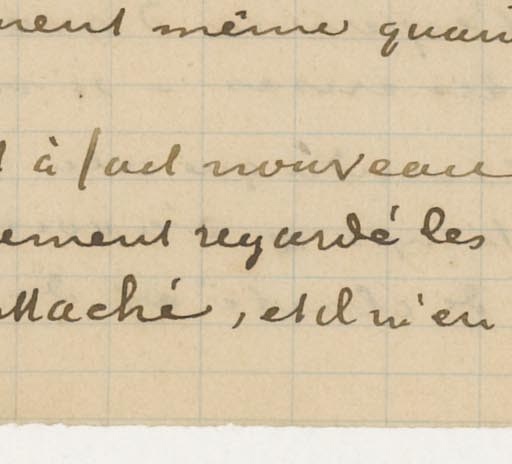 ment même quan
à fait nouveau
ement regardé les
attaché, et il n'en